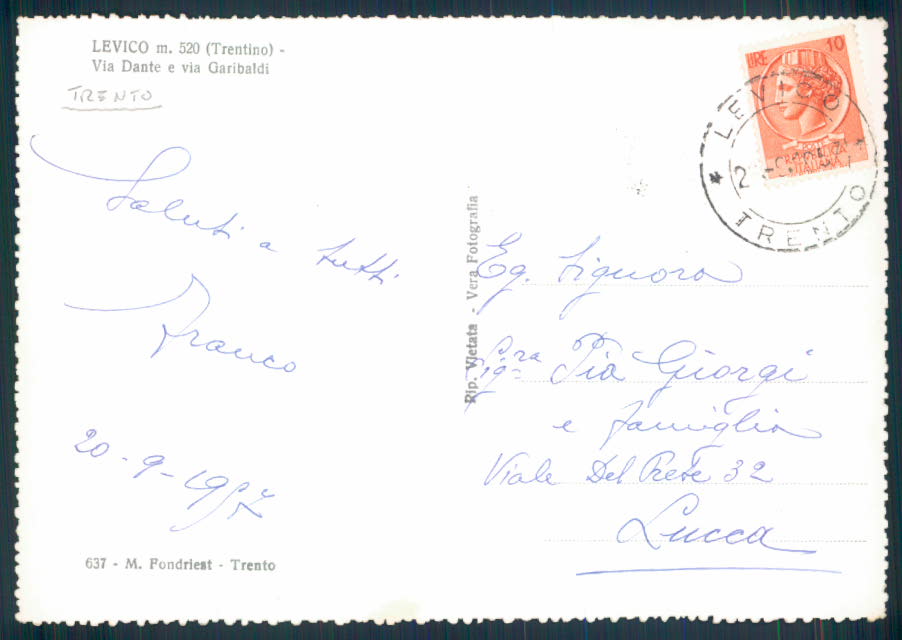 LEVICO m. 520 (Trentino) -
Via Dante e via Garibaldi
TRENTO
Saluti a tutti
Franco
20-9-1957
637 - M. Fondriest - Trento
Rip. Vietata - Vera Fotografia
LIRE 10
POSTE
REPUBBLICA
ITALIANA
* LEVICO *
TRENTO
Eg. Signora
Sig.ra Pia Giorgi
e famiglia
Viale Del Prete 32
Lucca